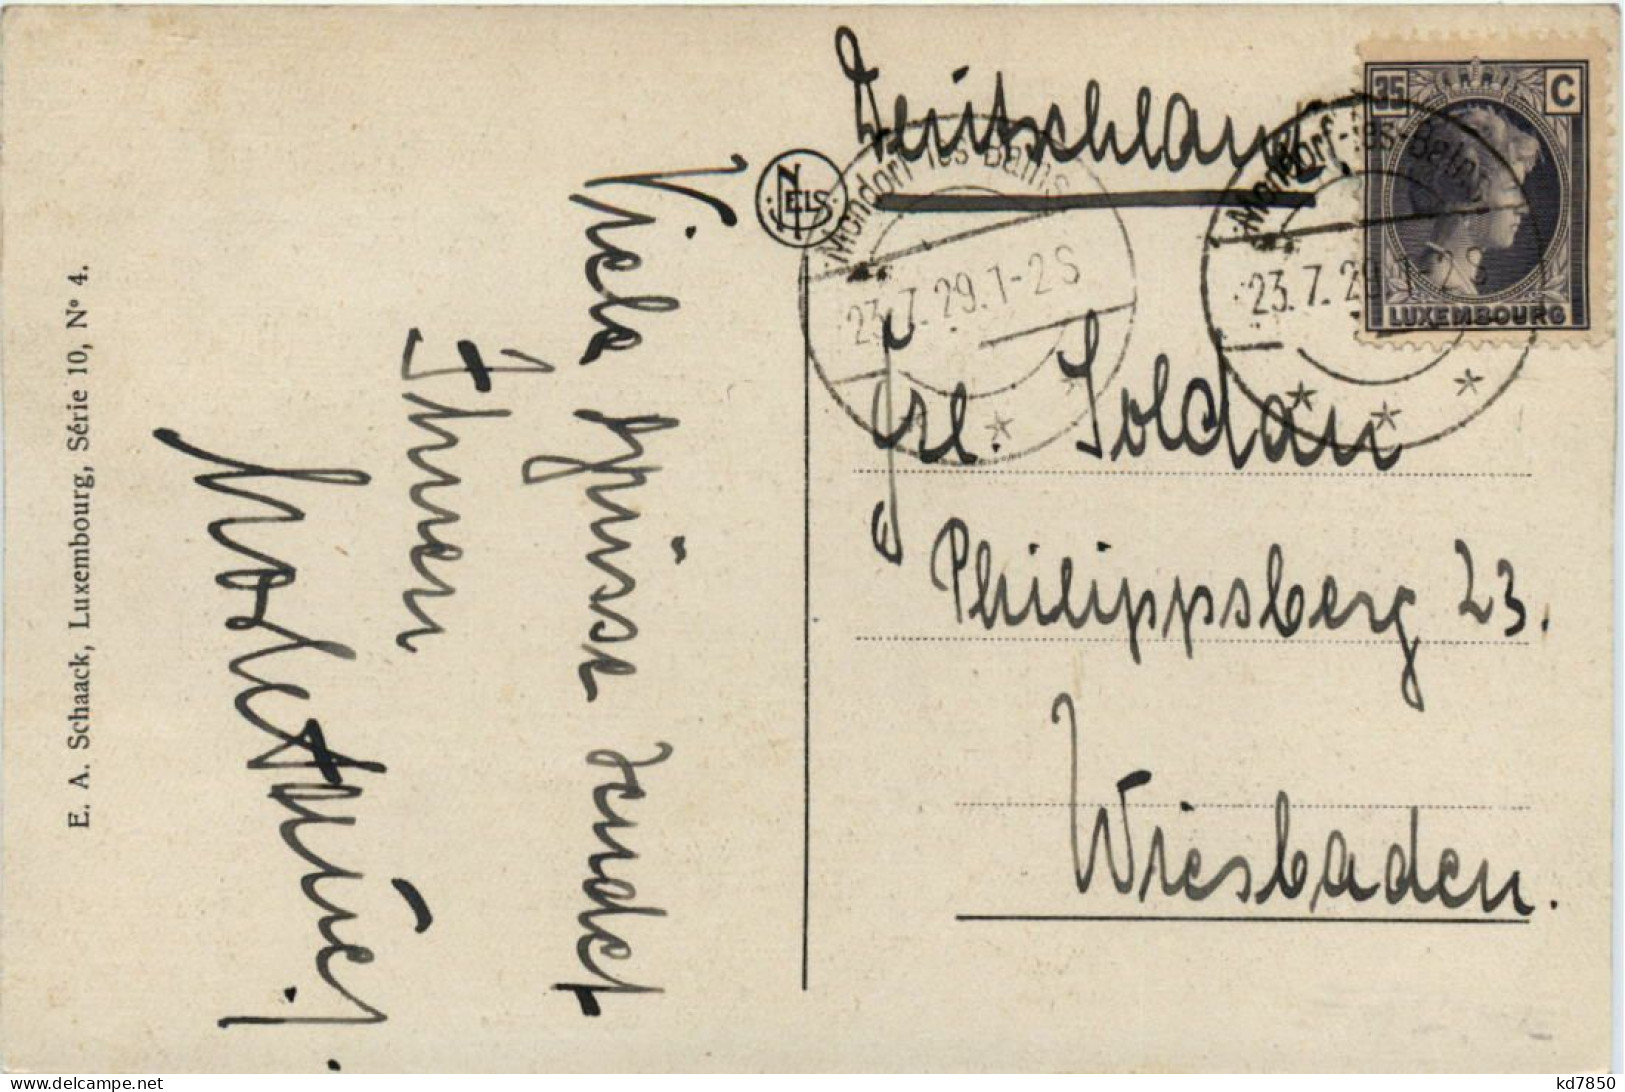 E. A. Schaack, Luxembourg, Série 10, N° 4.
Viele Grüsse sendet
Ihnen
NELS
Deutschland
35 C
LUXEMBOURG
Mondorf-les-Bains
23.7.29.1-2S
Mondorf-les-Bains
23.7.29.1-2S
Frl. Soldan
Philippsberg 23.
Wiesbaden.
kd7850